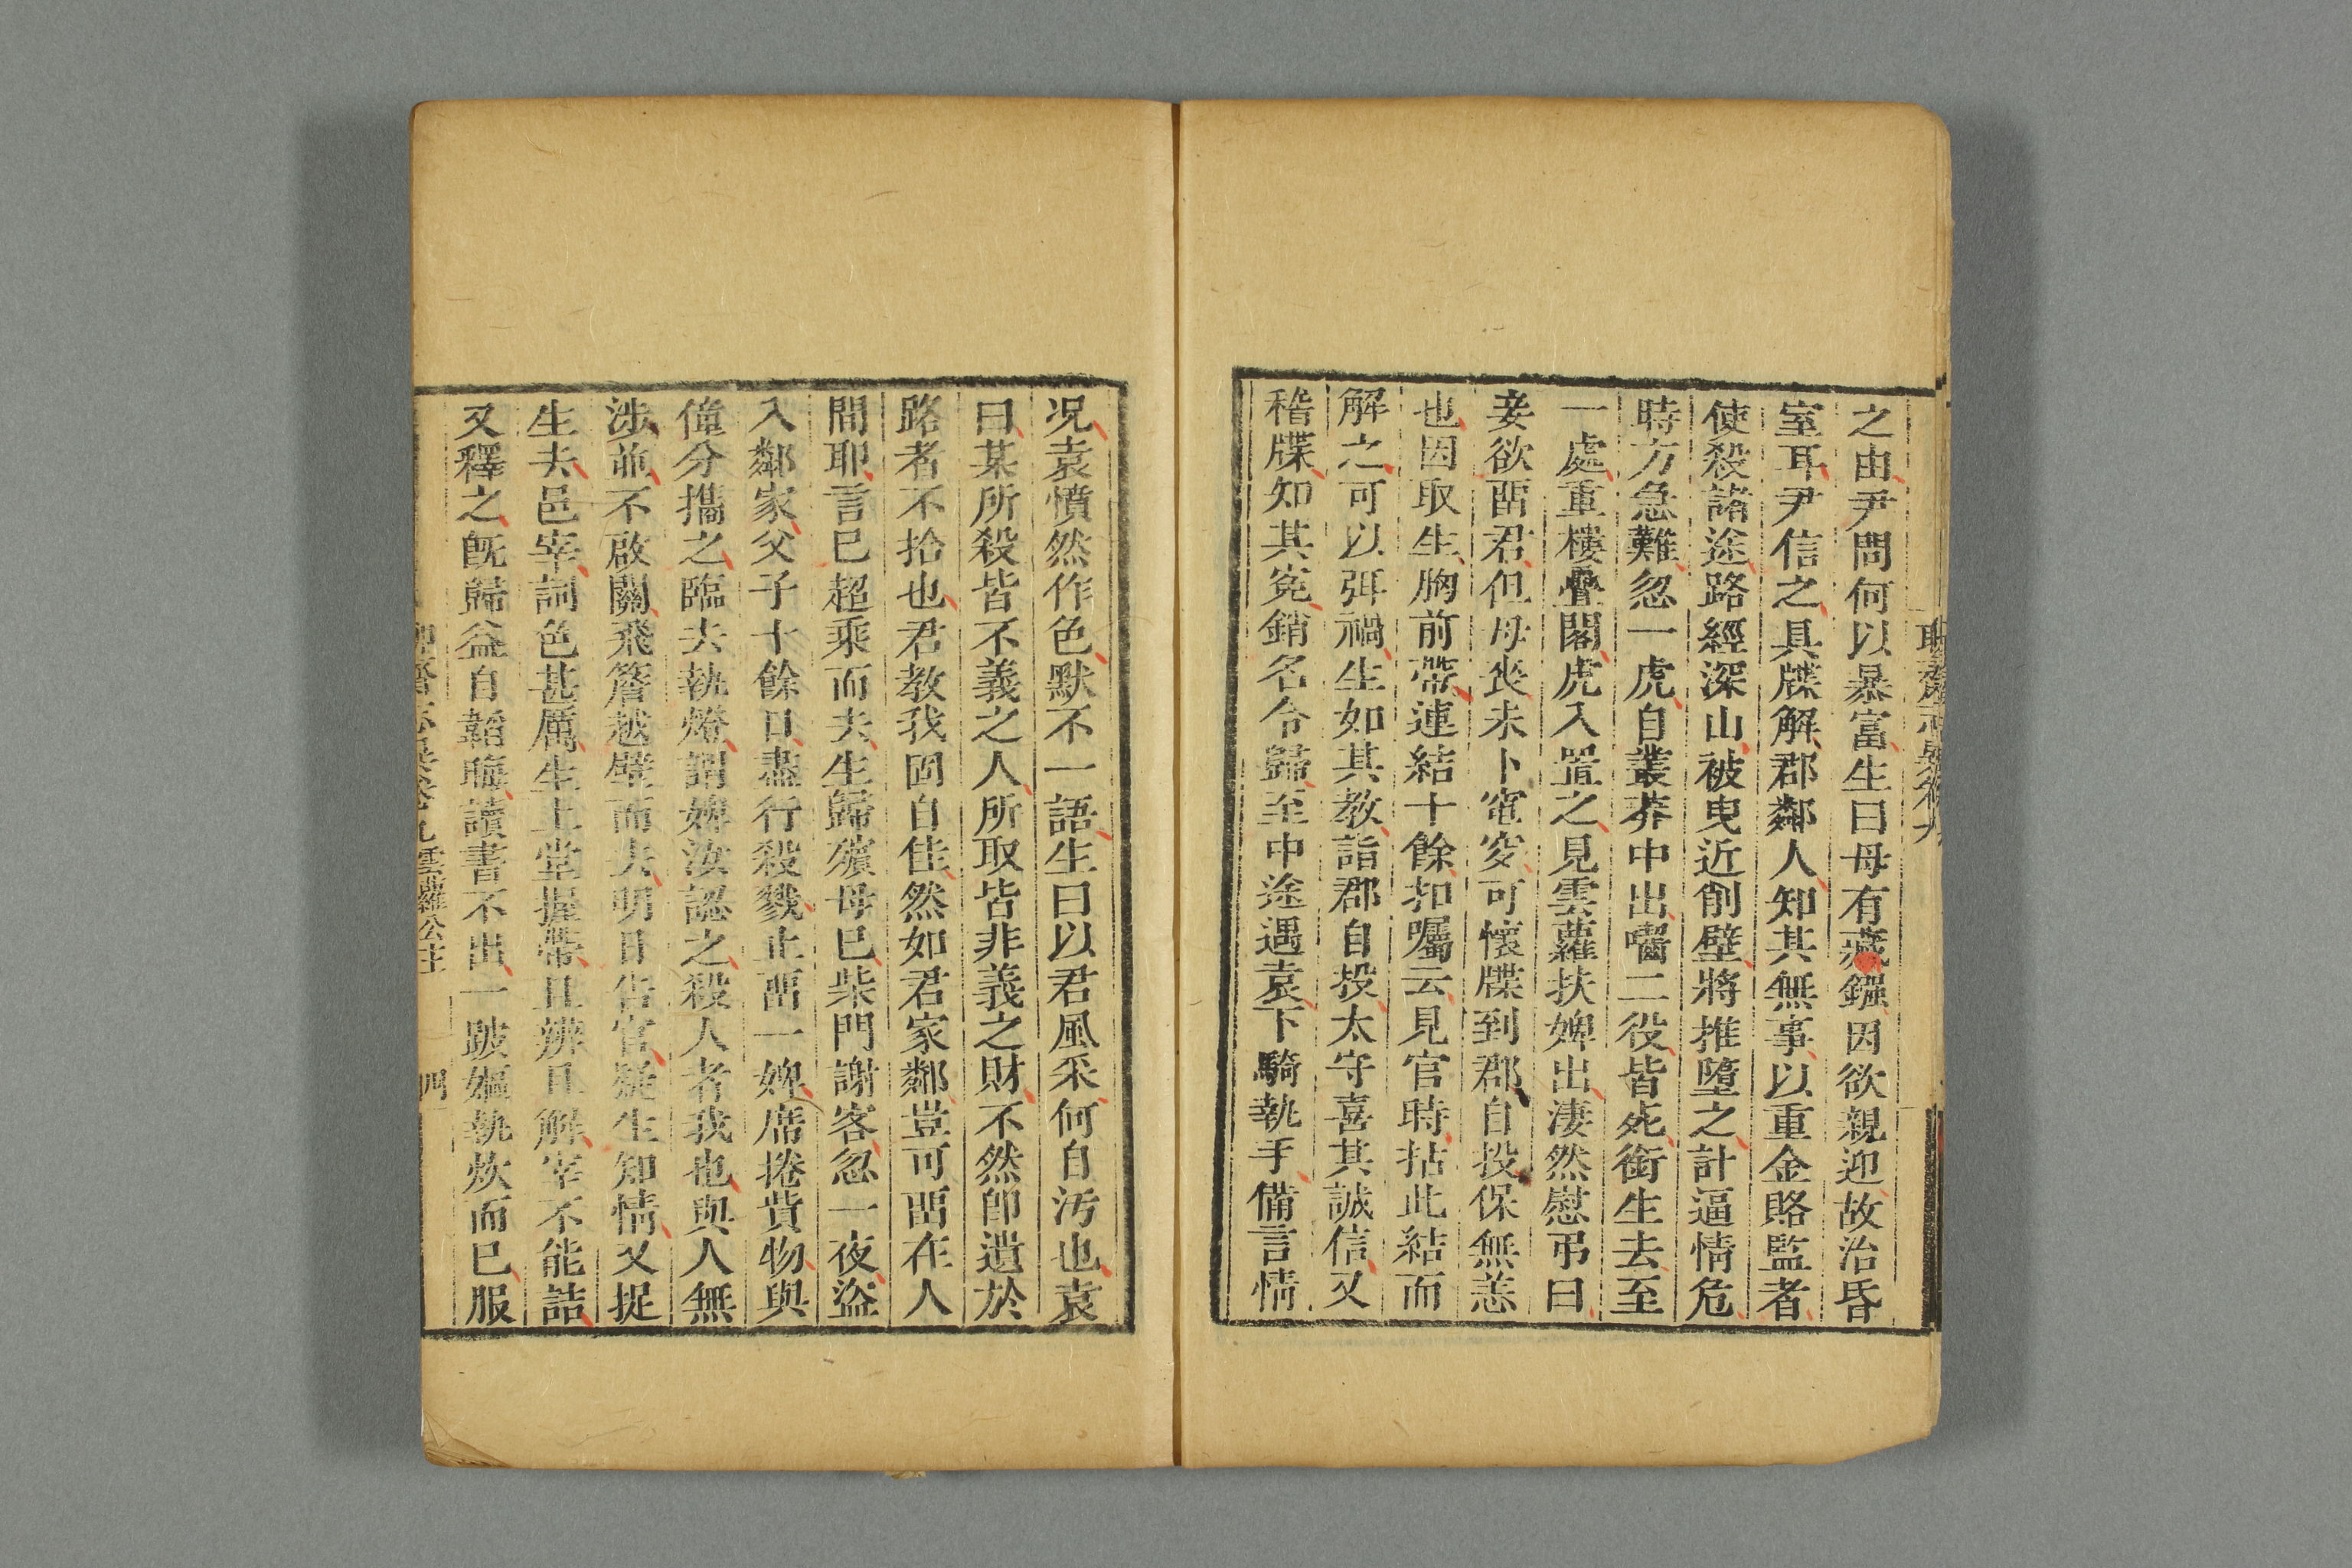 之由尹問何以暴富生曰母有藏鏹因欲親迎故治昏
室耳尹信之具牒解郡鄰人知其無事以重金賂監者
使殺諸途路經深山被曳近削壁將推墮之計逼情危
時方急難忽一虎自叢莽中出嚙二役皆死銜生去至
一處重樓疊閣虎入置之見雲蘿扶婢出淒然慰弔曰
妾欲畱君但母喪未卜窀穸可懷牒到郡自投保無恙
也因取生胸前帶連結十餘扣囑云見官時拈此結而
解之可以弭禍生如其教詣郡自投太守喜其誠信又
稽牒知其寃銷名令歸至中途遇袁下騎執手備言情
况袁憤然作色默不一語生曰以君風采何自汚也袁
曰某所殺皆不義之人所取皆非義之財不然卽遺於
路者不拾也君教我固自佳然如君家鄰豈可畱在人
間耶言已超乘而去生歸殯母已柴門謝客忽一夜盜
入鄰家父子十餘口盡行殺戮止畱一婢席捲貲物與
僮分攜之臨去執燈謂婢汝認之殺人者我也與人無
涉並不啟關飛簷越壁而去明日告官疑生知情又捉
生去邑宰詞色甚厲生上堂握帶且辨且解宰不能詰
又釋之旣歸益自韜晦讀書不出一跛嫗執炊而已服
雲蘿公主
四